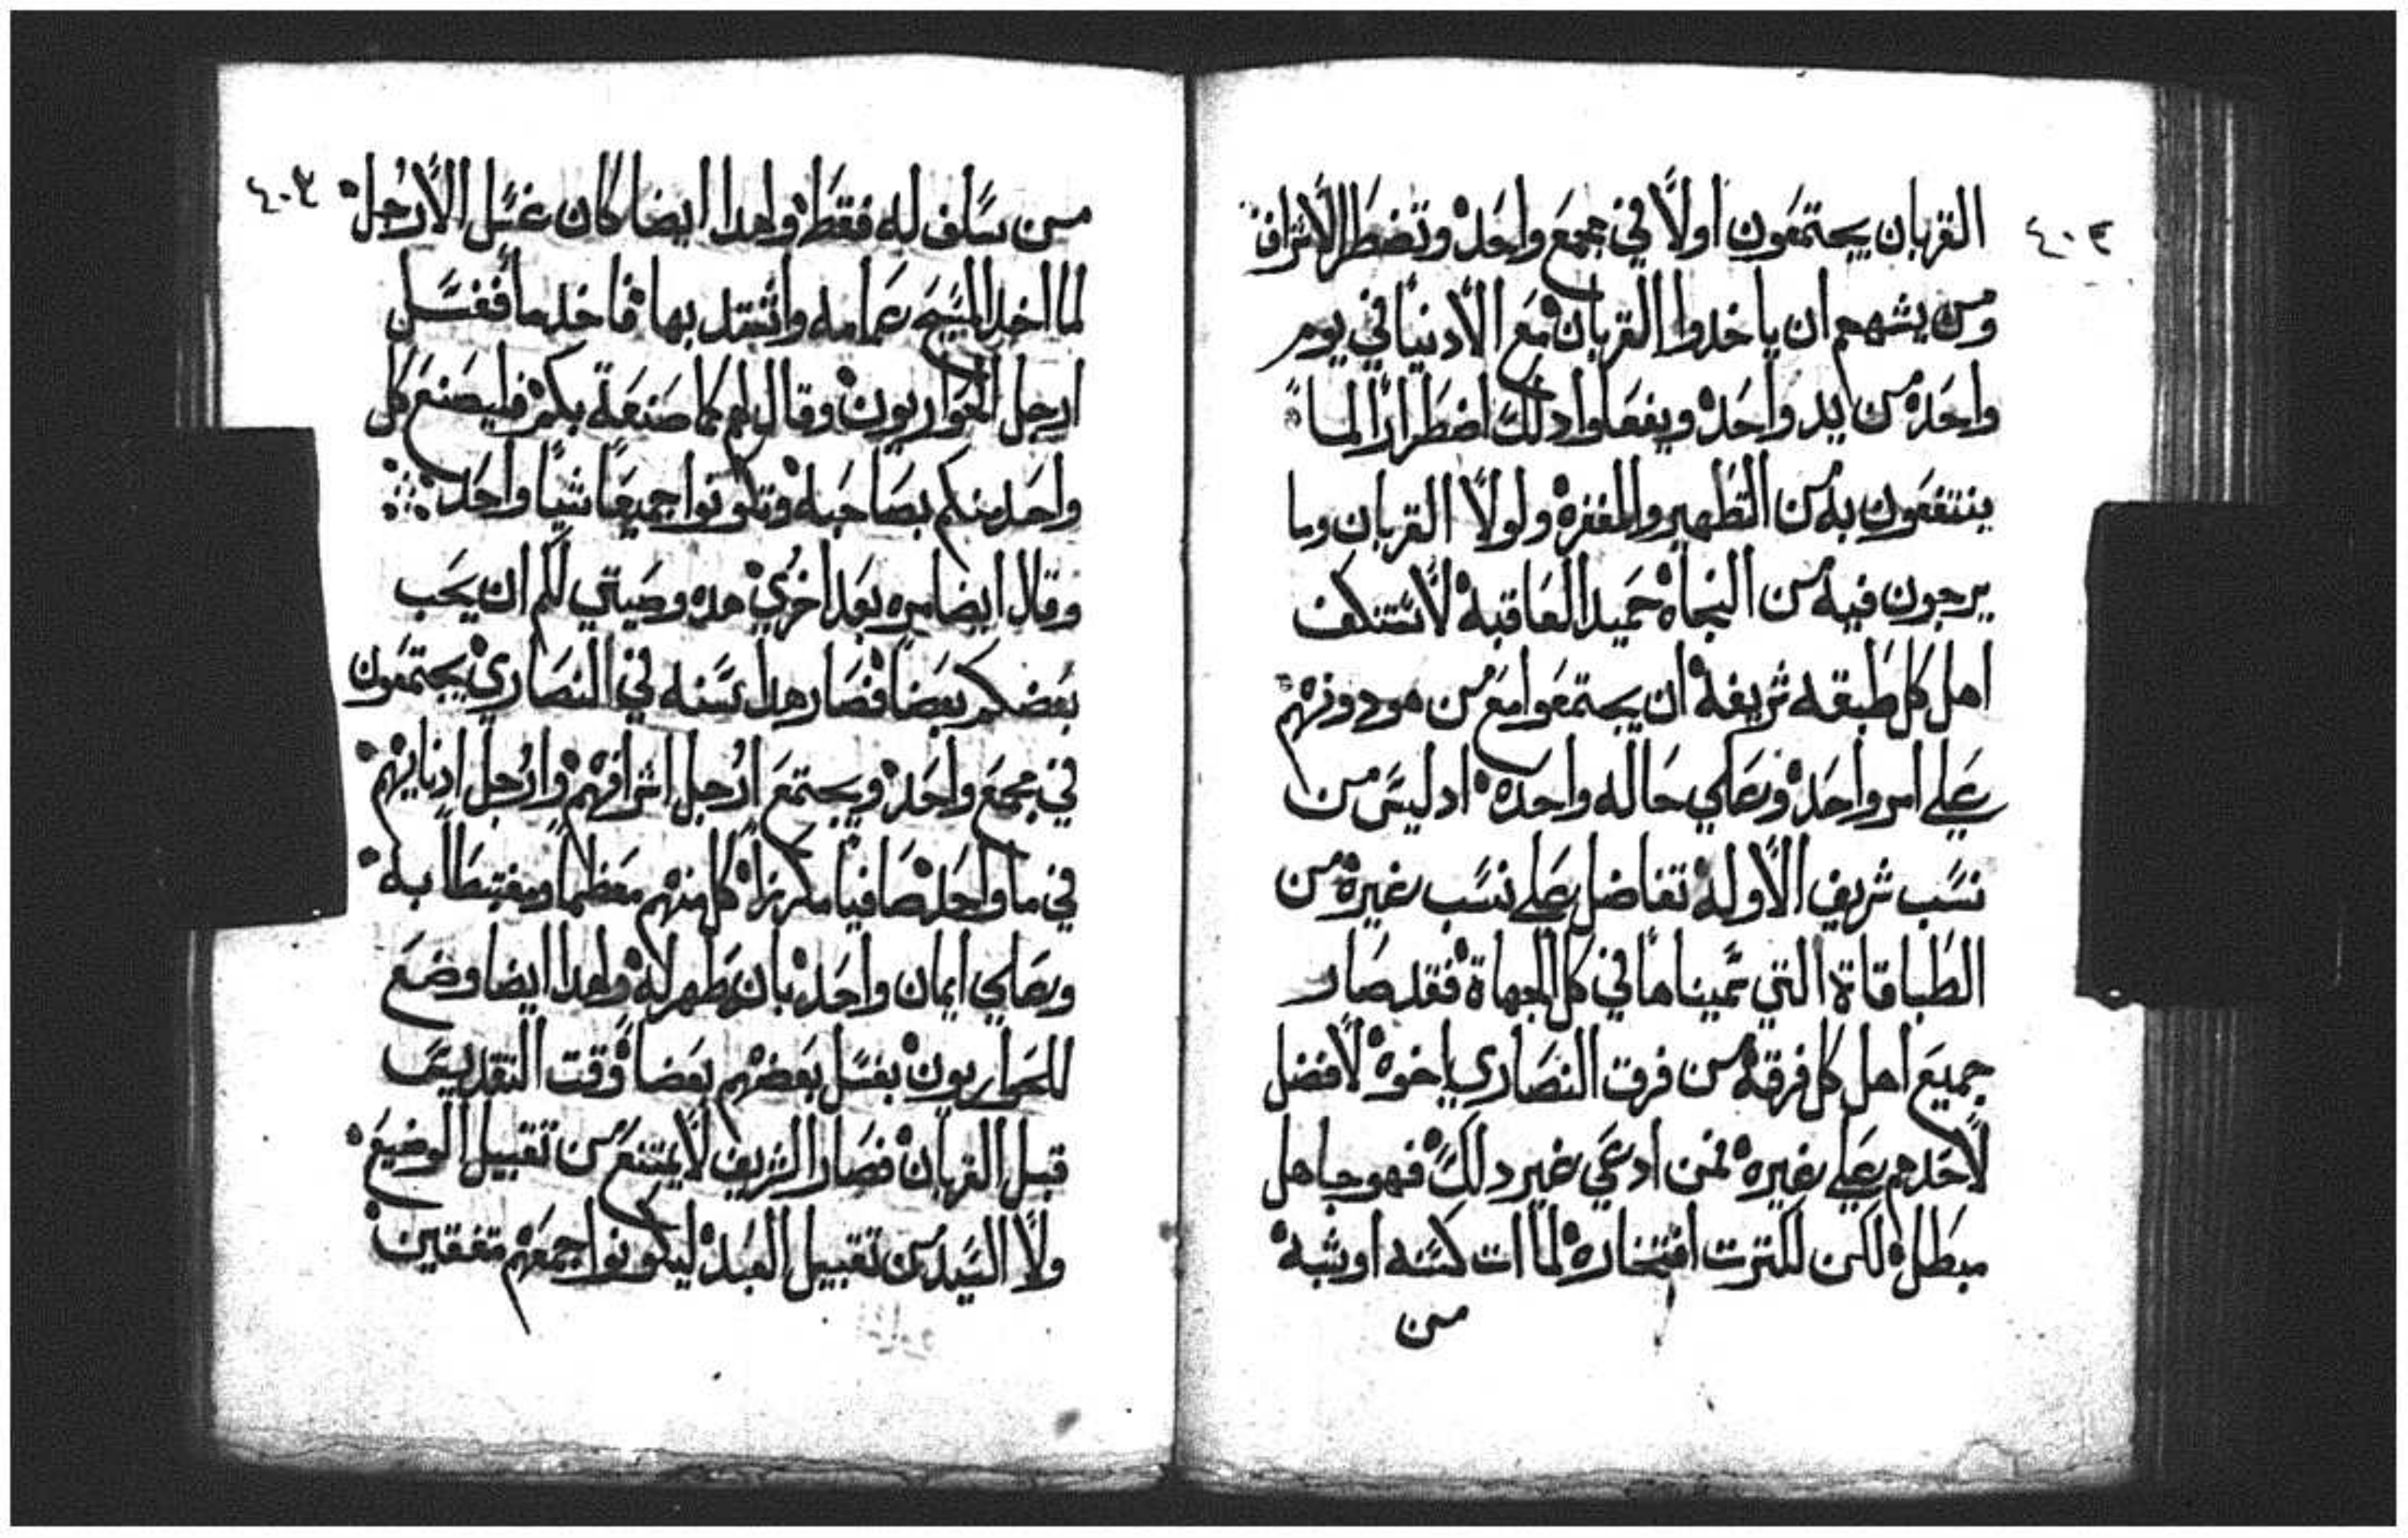 ٤٠٢
القربان يجتمعون اولًا في مجمع واحد وتضطر الاشراف
ومن يشبههم ان ياخدوا القربان مع الادنيا في يوم
واحد من يد واحد ويفعلوا دلك اضطرارًا لما
ينتفعون به من التطهير والمغفرة ولولا القربان وما
يرجون فيه من النجاة حميد العاقبة لا تستنكف
اهل كل طبقه شريفة ان يجتمعوا مع من هو دونهم
علي امر واحد وعلي حاله واحده اد ليس من
نسب شريف الا وله تفاضل علي نسب غيره من
الطباقاة التي سميناها في كل الجهاة فقد صار
جميع اهل كل فرقة من فرق النصاري اخوة لا فضل
لاحدهم علي غيره فمن ادعي غير دلك فهو جاهل
مبطل لكن للترت افتخاره لما ات كسنه او شبه
من
٤٠٣
من سلف له فقط وهدا ايضا كان غسل الارجل
لما اخد المسيح عمامه واتشد بها فاخد ما فغسل
ارجل الحواريون وقال لهم كما صنعة بكم فليصنع كل
واحد منكم بصاحبه وتكونوا جميعًا شيًا واحد
وقال ايضا مره بعد اخري هده وصيتي لكم ان يحب
بعضكم بعضا فصار هدا سنه في النصاري يجتمعون
في مجمع واحد ويجتمع ارجل اشرافهم وارجل ادنايهم
في ما واحد صافيا مكرزا كل منهم معظما ومغتبطا به
وعلي ايمان واحد بان طهر له وهدا ايضا وضع
للحواريون بغسل بعضهم بعضا وقت التقديس
قبل القربان فصار الشريف لا يمتنع من تقبيل الوضيع
ولا السيد من تقبيل العبد ليكونوا جمعهم متفقين